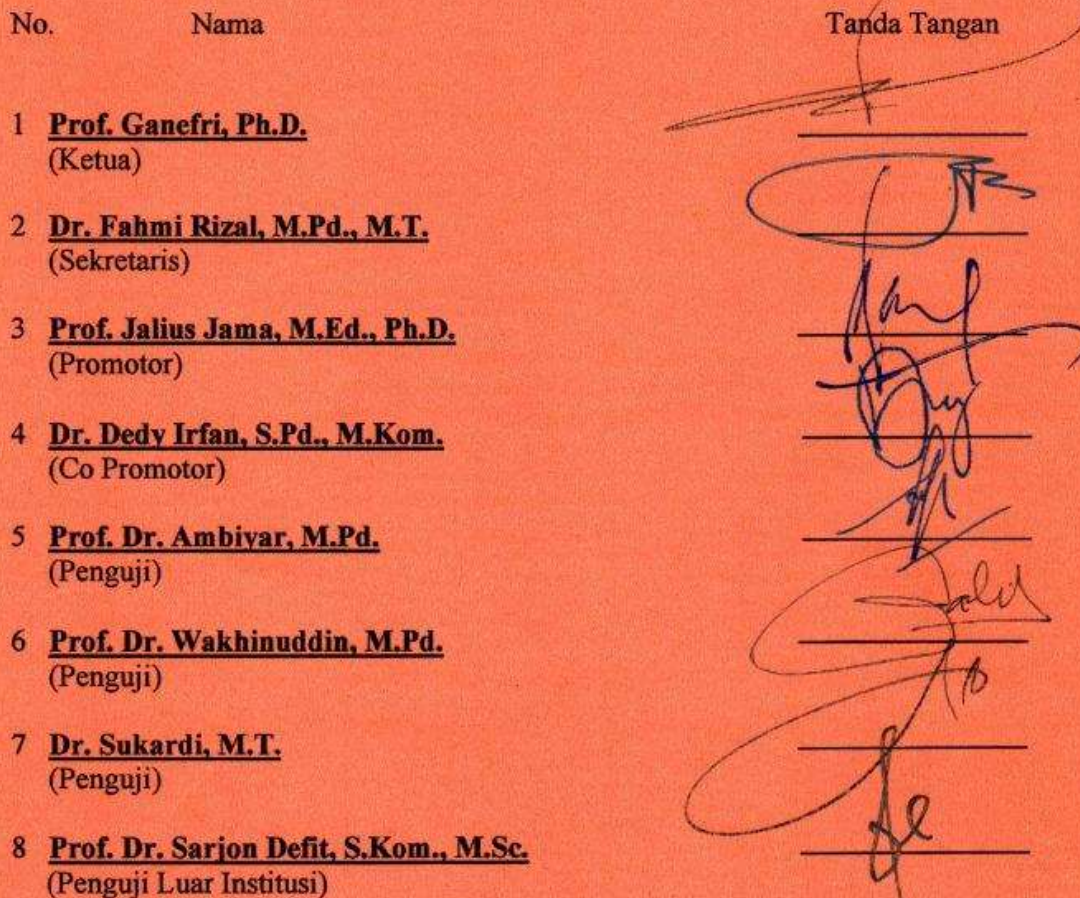 No. Nama Tanda Tangan
1 Prof. Ganefri, Ph.D.
(Ketua)
2 Dr. Fahmi Rizal, M.Pd., M.T.
(Sekretaris)
3 Prof. Jalius Jama, M.Ed., Ph.D.
(Promotor)
4 Dr. Dedy Irfan, S.Pd., M.Kom.
(Co Promotor)
5 Prof. Dr. Ambiyar, M.Pd.
(Penguji)
6 Prof. Dr. Wakhinuddin, M.Pd.
(Penguji)
7 Dr. Sukardi, M.T.
(Penguji)
8 Prof. Dr. Sarjon Defit, S.Kom., M.Sc.
(Penguji Luar Institusi)